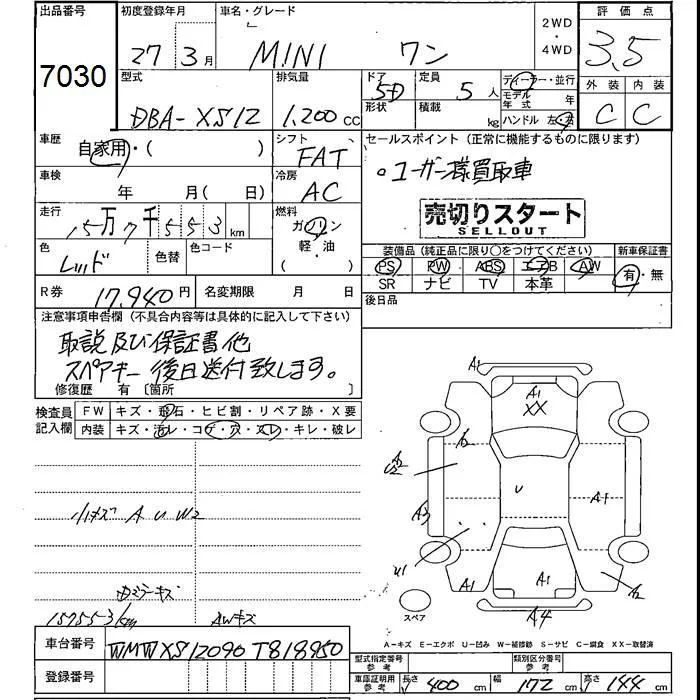 出品番号 初度登録年月 車名・グレード 2WD・4WD 評価点
7030 27年3月 MINI ワン 3.5
型式 排気量 ドア形状 定員 積載 ディーラー・並行 外装 内装
DBA-XS12 1,200cc 5D 5人 kg モデル年式 年 C C
ハンドル 左・右
車歴 自家用・( ) シフト FAT セールスポイント (正常に機能するものに限ります)
車検 年 月( 日) 冷房 AC 。ユーザー様買取車
走行 15万7千553km 燃料 ガソリン・軽・油 ( ) 売切りスタート
SELLOUT
色 レッド 色替 色コード 装備品 (純正品に限り○をつけてください) 新車保証書
PS PW ABS エアB AW 有・無
SR ナビ TV 本革
R券 17,940円 名変期限 月 日 後日品
注意事項申告欄 (不具合内容等は具体的に記入して下さい)
取説及び保証書他
スペアキー後日送付致します。
修復歴 有 〔箇所 〕
検査員記入欄 FW キズ・飛石・ヒビ割・リペア跡・X要
内装 キズ・汚レ・コゲ・穴・スレ・キレ・破レ
小キズ A U W2
ミラーキズ
157553km AWキズ
A1
A1
XX
U
A3 A1
U1
A1 A1
A4
スペア
A-キズ E-エクボ U-凹み W-補修跡 S-サビ C-腐食 XX-取替済
車台番号 WMWXS12090T818950
登録番号 型式指定番号 参考 類別区分番号 参考
車庫証明用 参考 長さ 400cm 幅 172cm 高さ 144cm